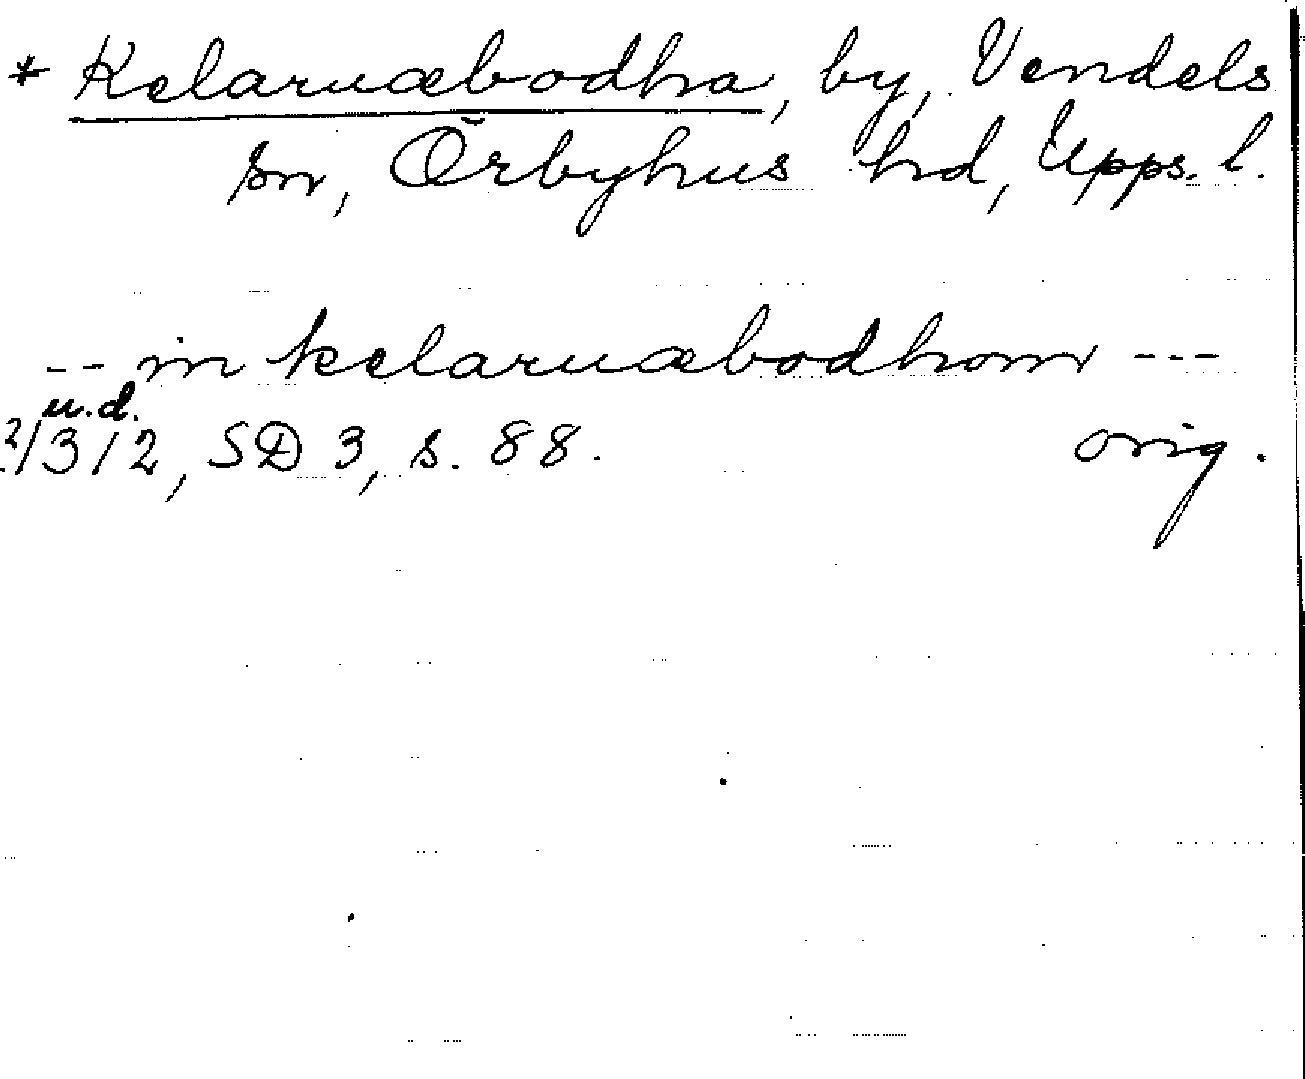 * Kelaruæbodha, by, Vendels
sn, Örbyhus hd, Upps. l.
-- in kelaruæbodhom ---
u.d.
2/312, SD 3, s. 88. orig.